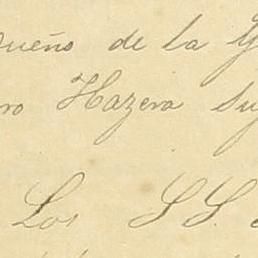 dueño de la G
ro Hazera Su
Los S.S.